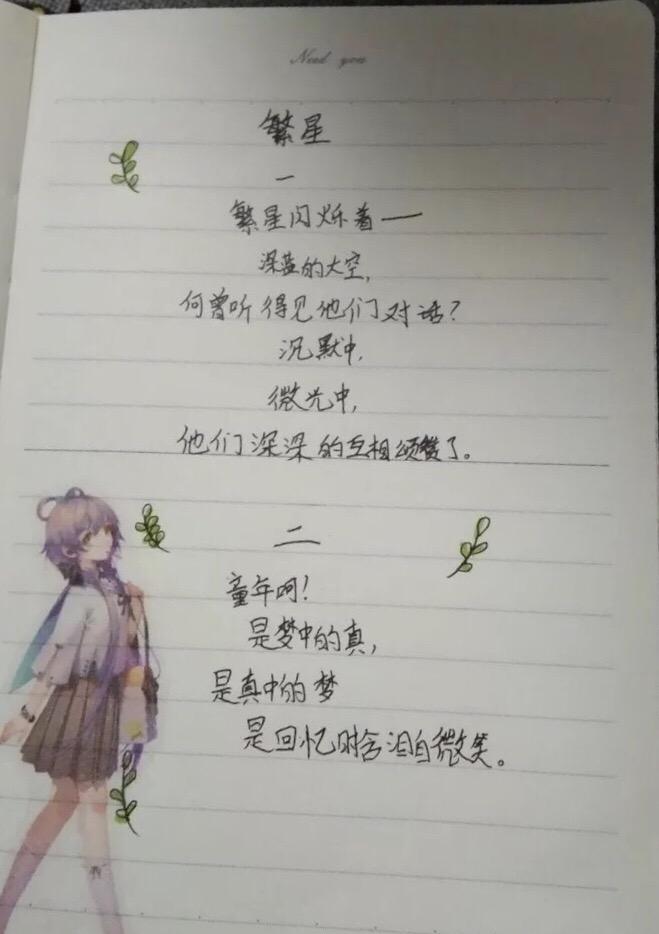 Need you
繁星
一
繁星闪烁着——
深蓝的太空,
何曾听得见他们对话?
沉默中,
微光中,
他们深深的互相颂赞了。
二
童年呵!
是梦中的真,
是真中的梦
是回忆时含泪自微笑。